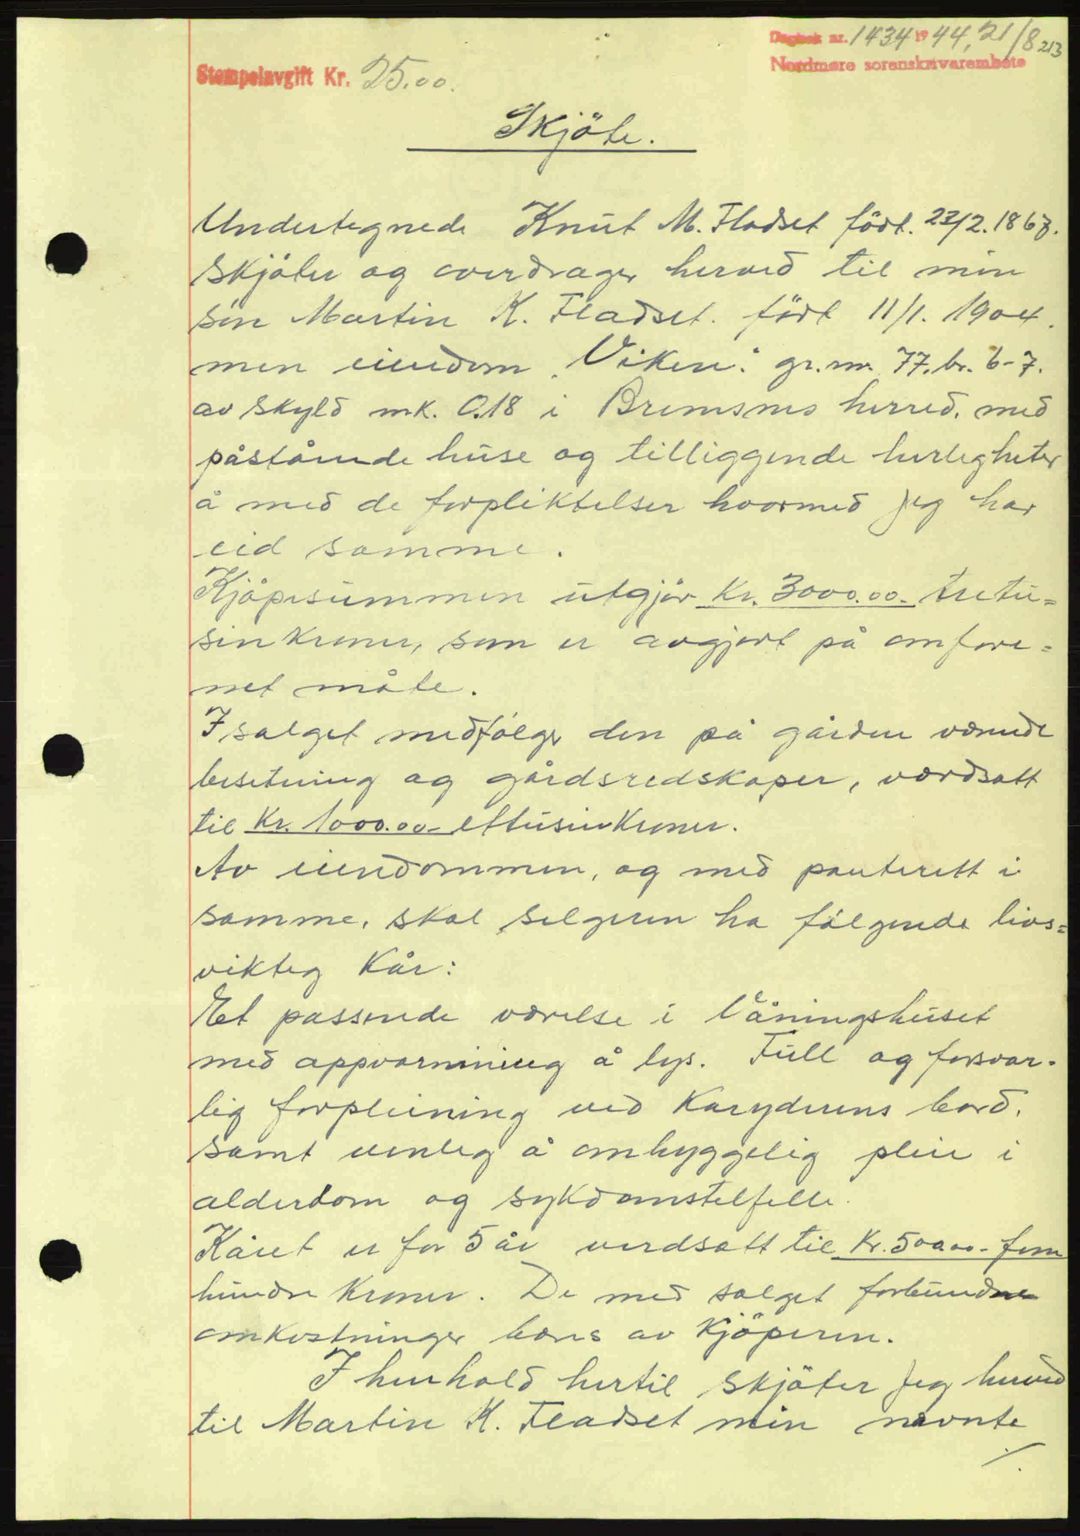 Dagbok nr. 1434 1944, 21/8 213
Nordmøre sorenskrivarembete
Stempelavgift Kr. 25.00.
Skjöte.
Undertegnede Knut M. Fladset födt. 22/2. 1867.
skjöter og overdrager herved til min
sön Martin K. Fladset. födt 11/1. 1904.
men eiendom "Viken". gr. nr. 77. br. 6-7.
av skyld mk. 0.18 i Bremsnes herred. med
påståande huse og tilliggende herligheter
å med de forpliktelser hvormed jeg har
eid samme.
Kjöpesummen utgjör Kr. 3000.00- tretu=
sin kroner, som er avgjort på omfore=
net måte.
I salget medfölger den på gården værende
besetning og gårdsredskaper, værdsatt
til Kr. 1000.00- ettusin Kroner.
Av eiendommen, og med panterett i
samme, skal selgeren ha fölgende livs=
vikteg Kår:
Et passende værelse i våningshuset
med oppvarmning å lys. Full og forsvar-
lig forpleining ved Karyderens bord.
samt venleg å omhyggelig pleie i
alderdom og sykdomstelfelle.
Kåret er for 5 år verdsatt til Kr. 500.00- fem
hundre Kroner. De med salget forbundne
omkostninger bæres av Kjöperen.
I henhold hertil skjöter jeg herved
til Martin K. Fladset min nævnte
./.